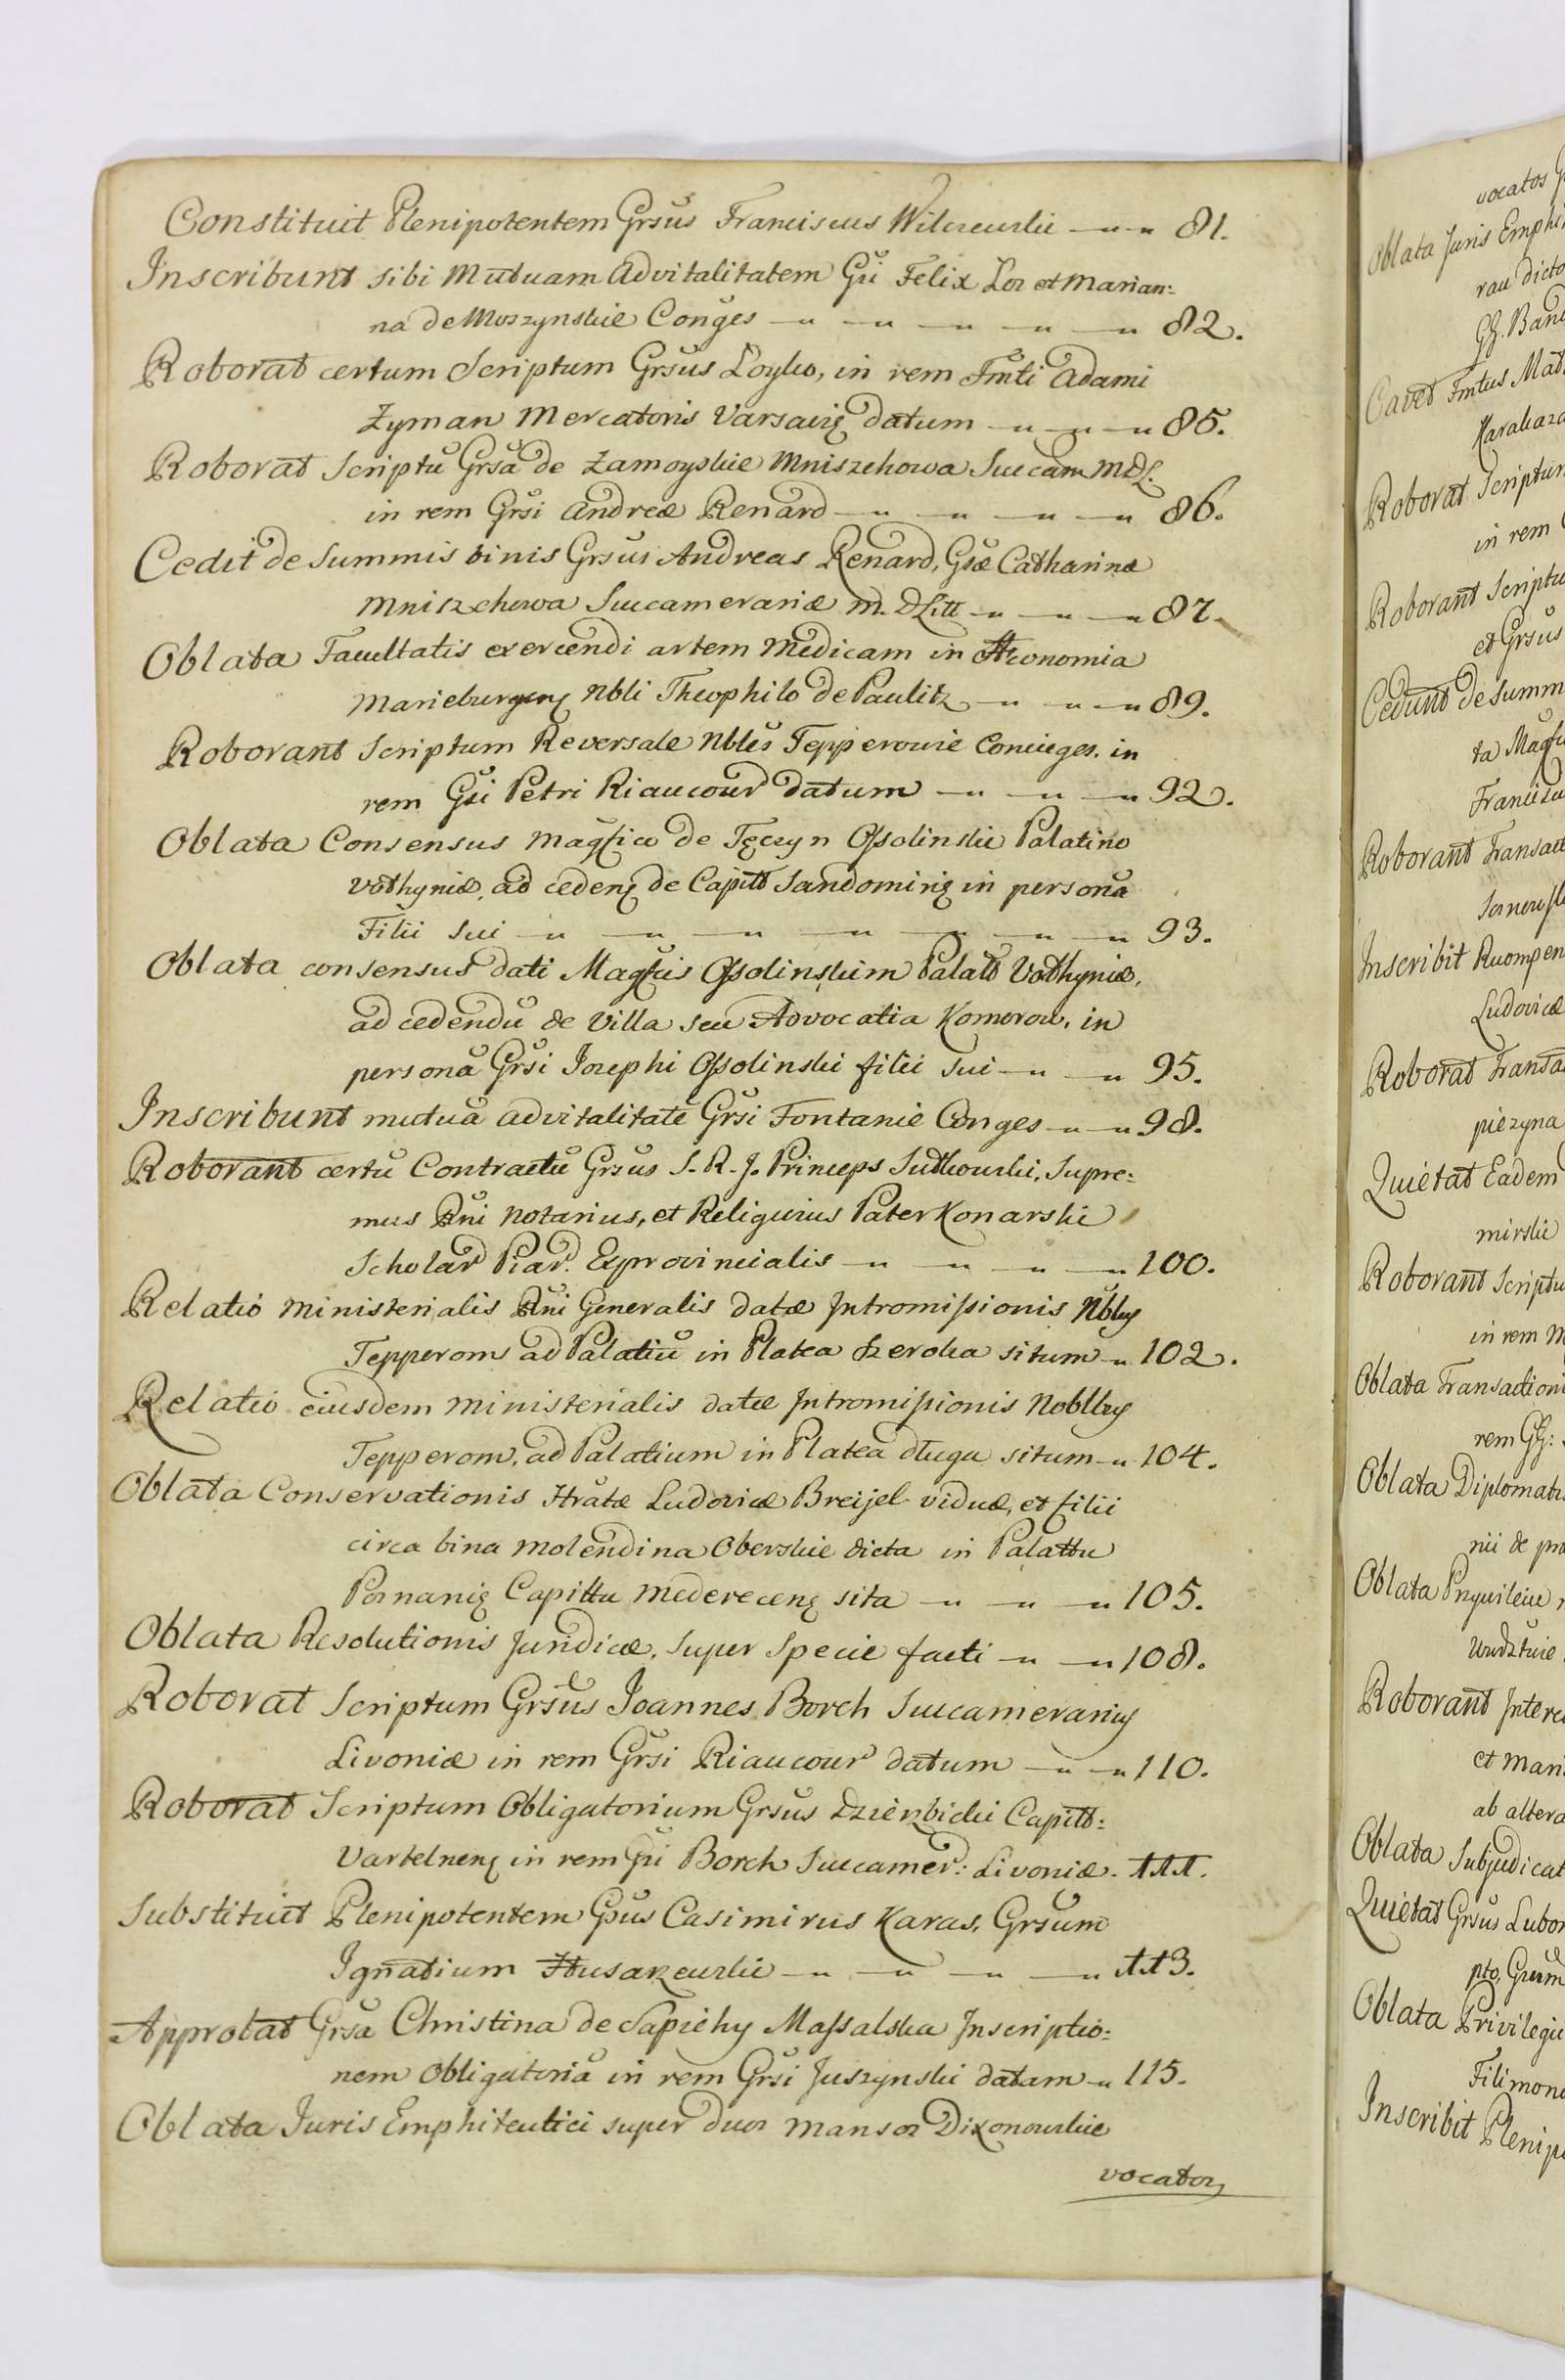 Constituit Plenipotentem Grsus Franciscus Wilczewski — 81.
Inscribunt sibi Mutuam Advitalitatem Gsi Felix Loz et Marian:
na de Moszynskie Conges — 82.
Roborat certum Scriptum Grsus Łoyko, in rem Fmti Adami
Zyman Mercatoris Varsavię datum — 85.
Roborat Scriptũ Grsa de Zamoyskie Mniszchowa Succam M.D.L.
in rem Grsi Andreæ Renard — 86.
Cedit de Summis binis Grsus Andreas Renard, Gsæ Catharinæ
Mniszchowa Succamerariæ M. D Litt — 87.
Oblata Facultatis exercendi artem Medicam in Æconomia
Marieburgens Nbli Theophilo de Paulitz — 89.
Roborant Scriptum Reversale Nbles Tepperowie Conieges. in
rem Gsi Petri Riaucour datum — 92.
Oblata Consensus Magfico de Tęczyn Ossolinskie Palatino
Volhyniæ, ad cedenḡ de Captt Sandomirię in personã
Filii Sui — 93.
Oblata consensus dati Magfcis Ossolinskim Palatt Volhyniæ,
ad cedendũ de Villa seu Advocatia Komorow, in
personã Grsi Josephi Ossolinski filii Sui — 95.
Inscribunt mutuã advitalitatẽ Grsi Fontanie Conges — 98.
Roborant certũ Contractũ Grsus S. R. J. Princeps Sułkowski, Supre:
mus Rni Notarius, et Religiosus Pater Konarski
Scholar Piar. Exprovincialis — 100.
Relatio Ministerialis Rni Generalis datæ Intromissionis Nbly
Tepperom ad Palatiũ in Platea Szeroka situm — 102.
Relatio eiusdem Ministerialis datæ Intromissionis Nobllry
Tepperom, ad Palatium in Platea długa situm — 104.
Oblata Conservationis Hratæ Ludovicæ Breijel viduæ, et filii
circa bina molendina Oberskie dicta in Palattu
Poznanię Capittu Mederecenḡ sita — 105.
Oblata Resolutionis Juridicæ, super Specie facti — 108.
Roborat Scriptum Grsus Joannes Borch Succamerariy
Livoniæ in rem Grsi Riaucour datum — 110.
Roborat Scriptum Obligatorium Grsus Dzierzbicki Capitt:
Vartelnenḡ in rem Gsi Borch Succamer: Livoniæ. 111.
Substituit Plenipotentem Gsus Casimirus Karas, Grsum
Ignatium Husarzewski — 113.
Approbat Grsa Christina de Sapiehy Massalska Inscriptio:
nem Obligatoriã in rem Grsi Juszynski datam — 115.
Oblata Juris Emphiteutici super duos mansos Dizonowskie
vocatos
vocatos
Oblata Juris Emphi
rau dicto
Gg. Band
Cavet Fmtus Mat
Karakaza
Roborat Scriptum
in rem
Roborant Scriptu
et Grsus
Cedunt de Summ
ta Magfi
Francisc
Roborant Transact
Inscribit Ruompen
Ludovicæ
Roborat Transa
piezyna
Quietat Eadem
mirskie
Roborant Scriptu
in rem M
Oblata Transactioni
rem Gg:
Oblata Diplomati
nii de pra
Oblata
Roborant Interc
et Mari
ab altera
Oblata Subjudicat
Quietat Grsus Lubo
pto, Grum
Oblata Privilegii
Filimono
Inscribit Plenipo